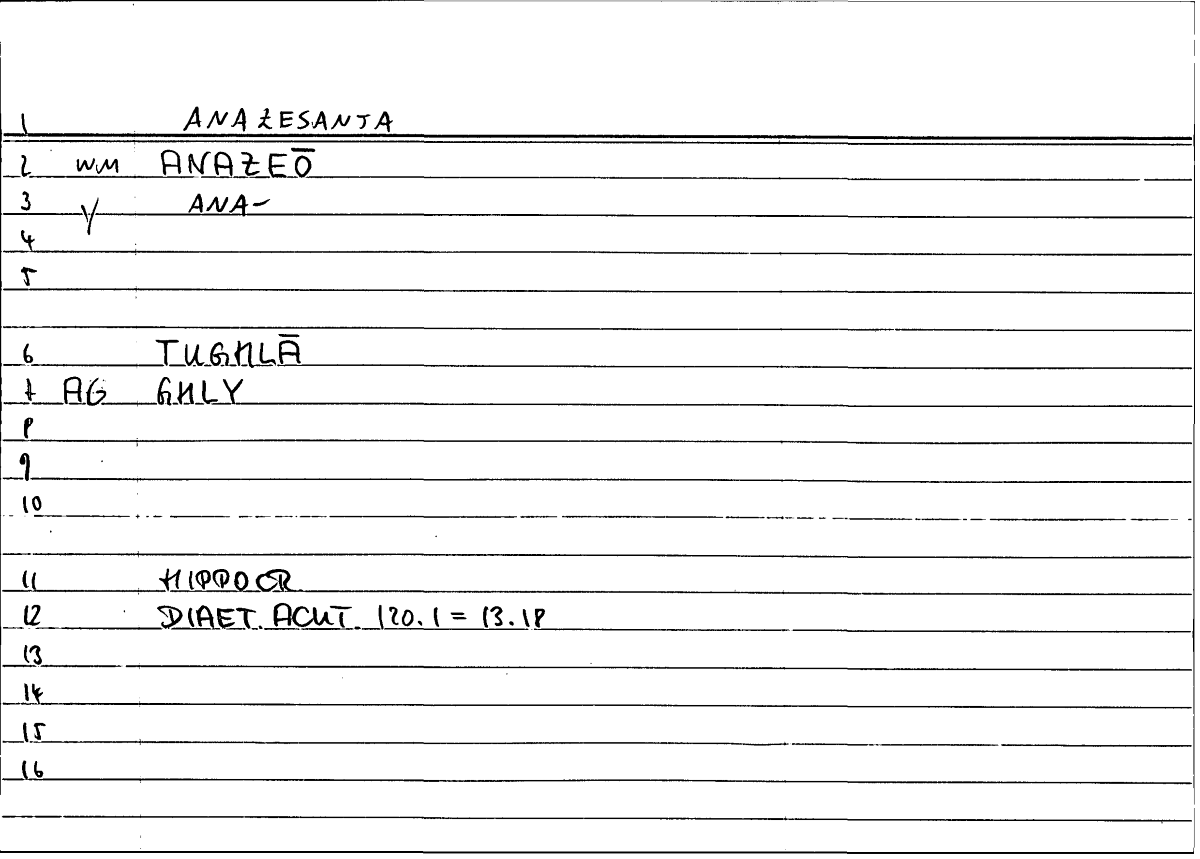 1 ANAZESANTA
2 WM ANAZEŌ
3 Y ANA-
4
5
6 TUGHLĀ
7 AG GHLY
8
9
10
11 HIPPOCR
12 DIAET. ACUT. 120.1 = 13.18
13
14
15
16